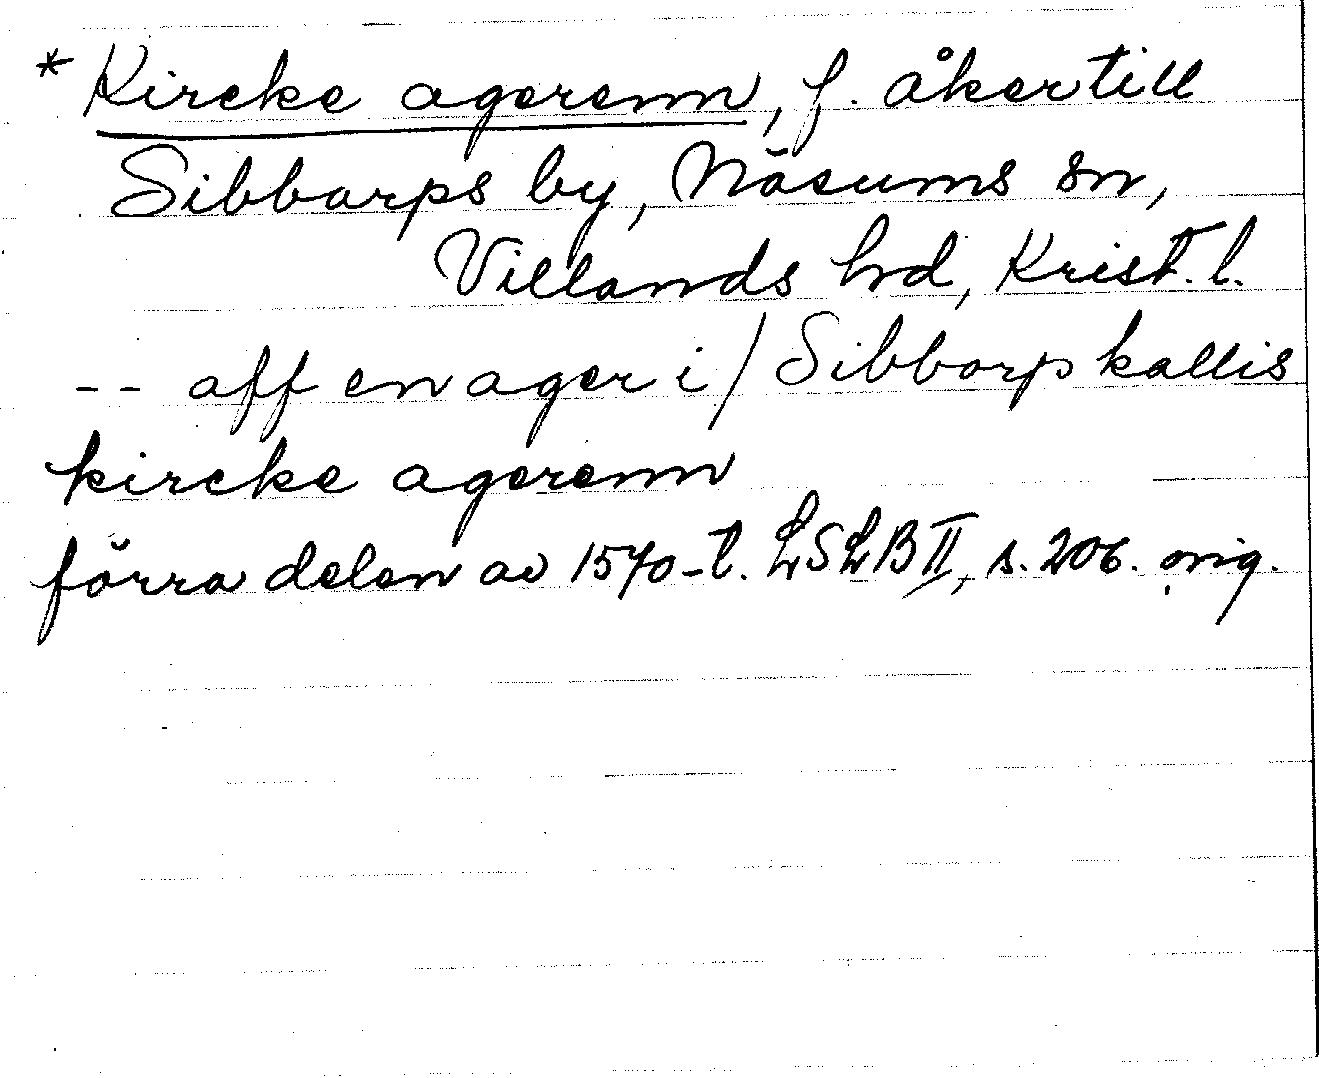 * Kircke agerenn, f. åker till
Sibbarps by, Näsums sn,
Villands hd, Krist. l.
-- aff en ager i / Sibbarp kallis
kircke agerenn
förra delen av 1570-t. LSLB II, s. 206. orig.